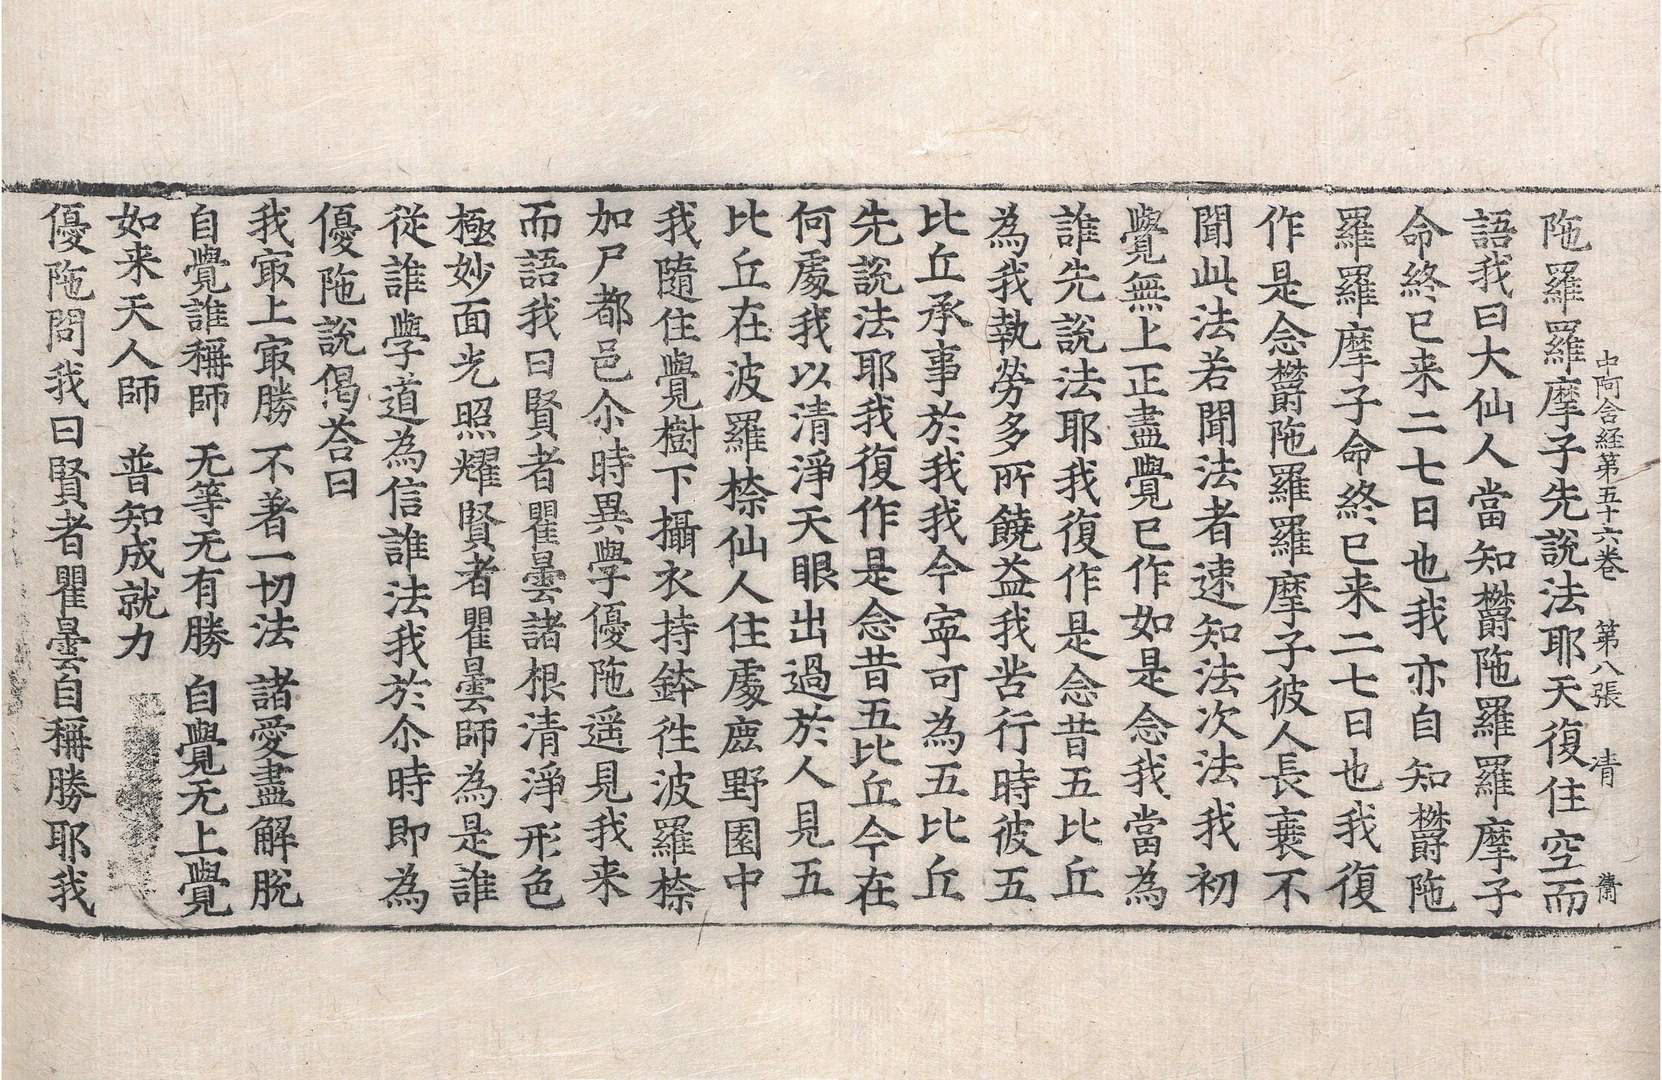 中阿含経第五十六巻 第八張 清
陁羅羅摩子先說法耶天復住空而
語我曰大仙人當知欝陁羅羅摩子
命終已来二七日也我亦自知欝陁
羅羅摩子命終已来二七日也我復
作是念欝陁羅羅摩子彼人長衰不
聞此法若聞法者速知法次法我初
覺無上正盡覺已作如是念我當為
誰先說法耶我復作是念昔五比丘
為我執勞多所饒益我苦行時彼五
比丘承事於我我今寧可為五比丘
先說法耶我復作是念昔五比丘今在
何處我以清淨天眼出過於人見五
比丘在波羅㮈仙人住處鹿野園中
我隨住覺樹下攝衣持鉢往波羅㮈
加尸都邑尒時異學優陁遥見我来
而語我曰賢者瞿曇諸根清淨形色
極妙面光照耀賢者瞿曇師為是誰
從誰學道為信誰法我於尒時即為
優陁說偈荅曰
我㝡上㝡勝 不著一切法 諸愛盡解脫
自覺誰稱師 无等无有勝 自覺无上覺
如来天人師 普知成就力
優陁問我曰賢者瞿曇自稱勝耶我